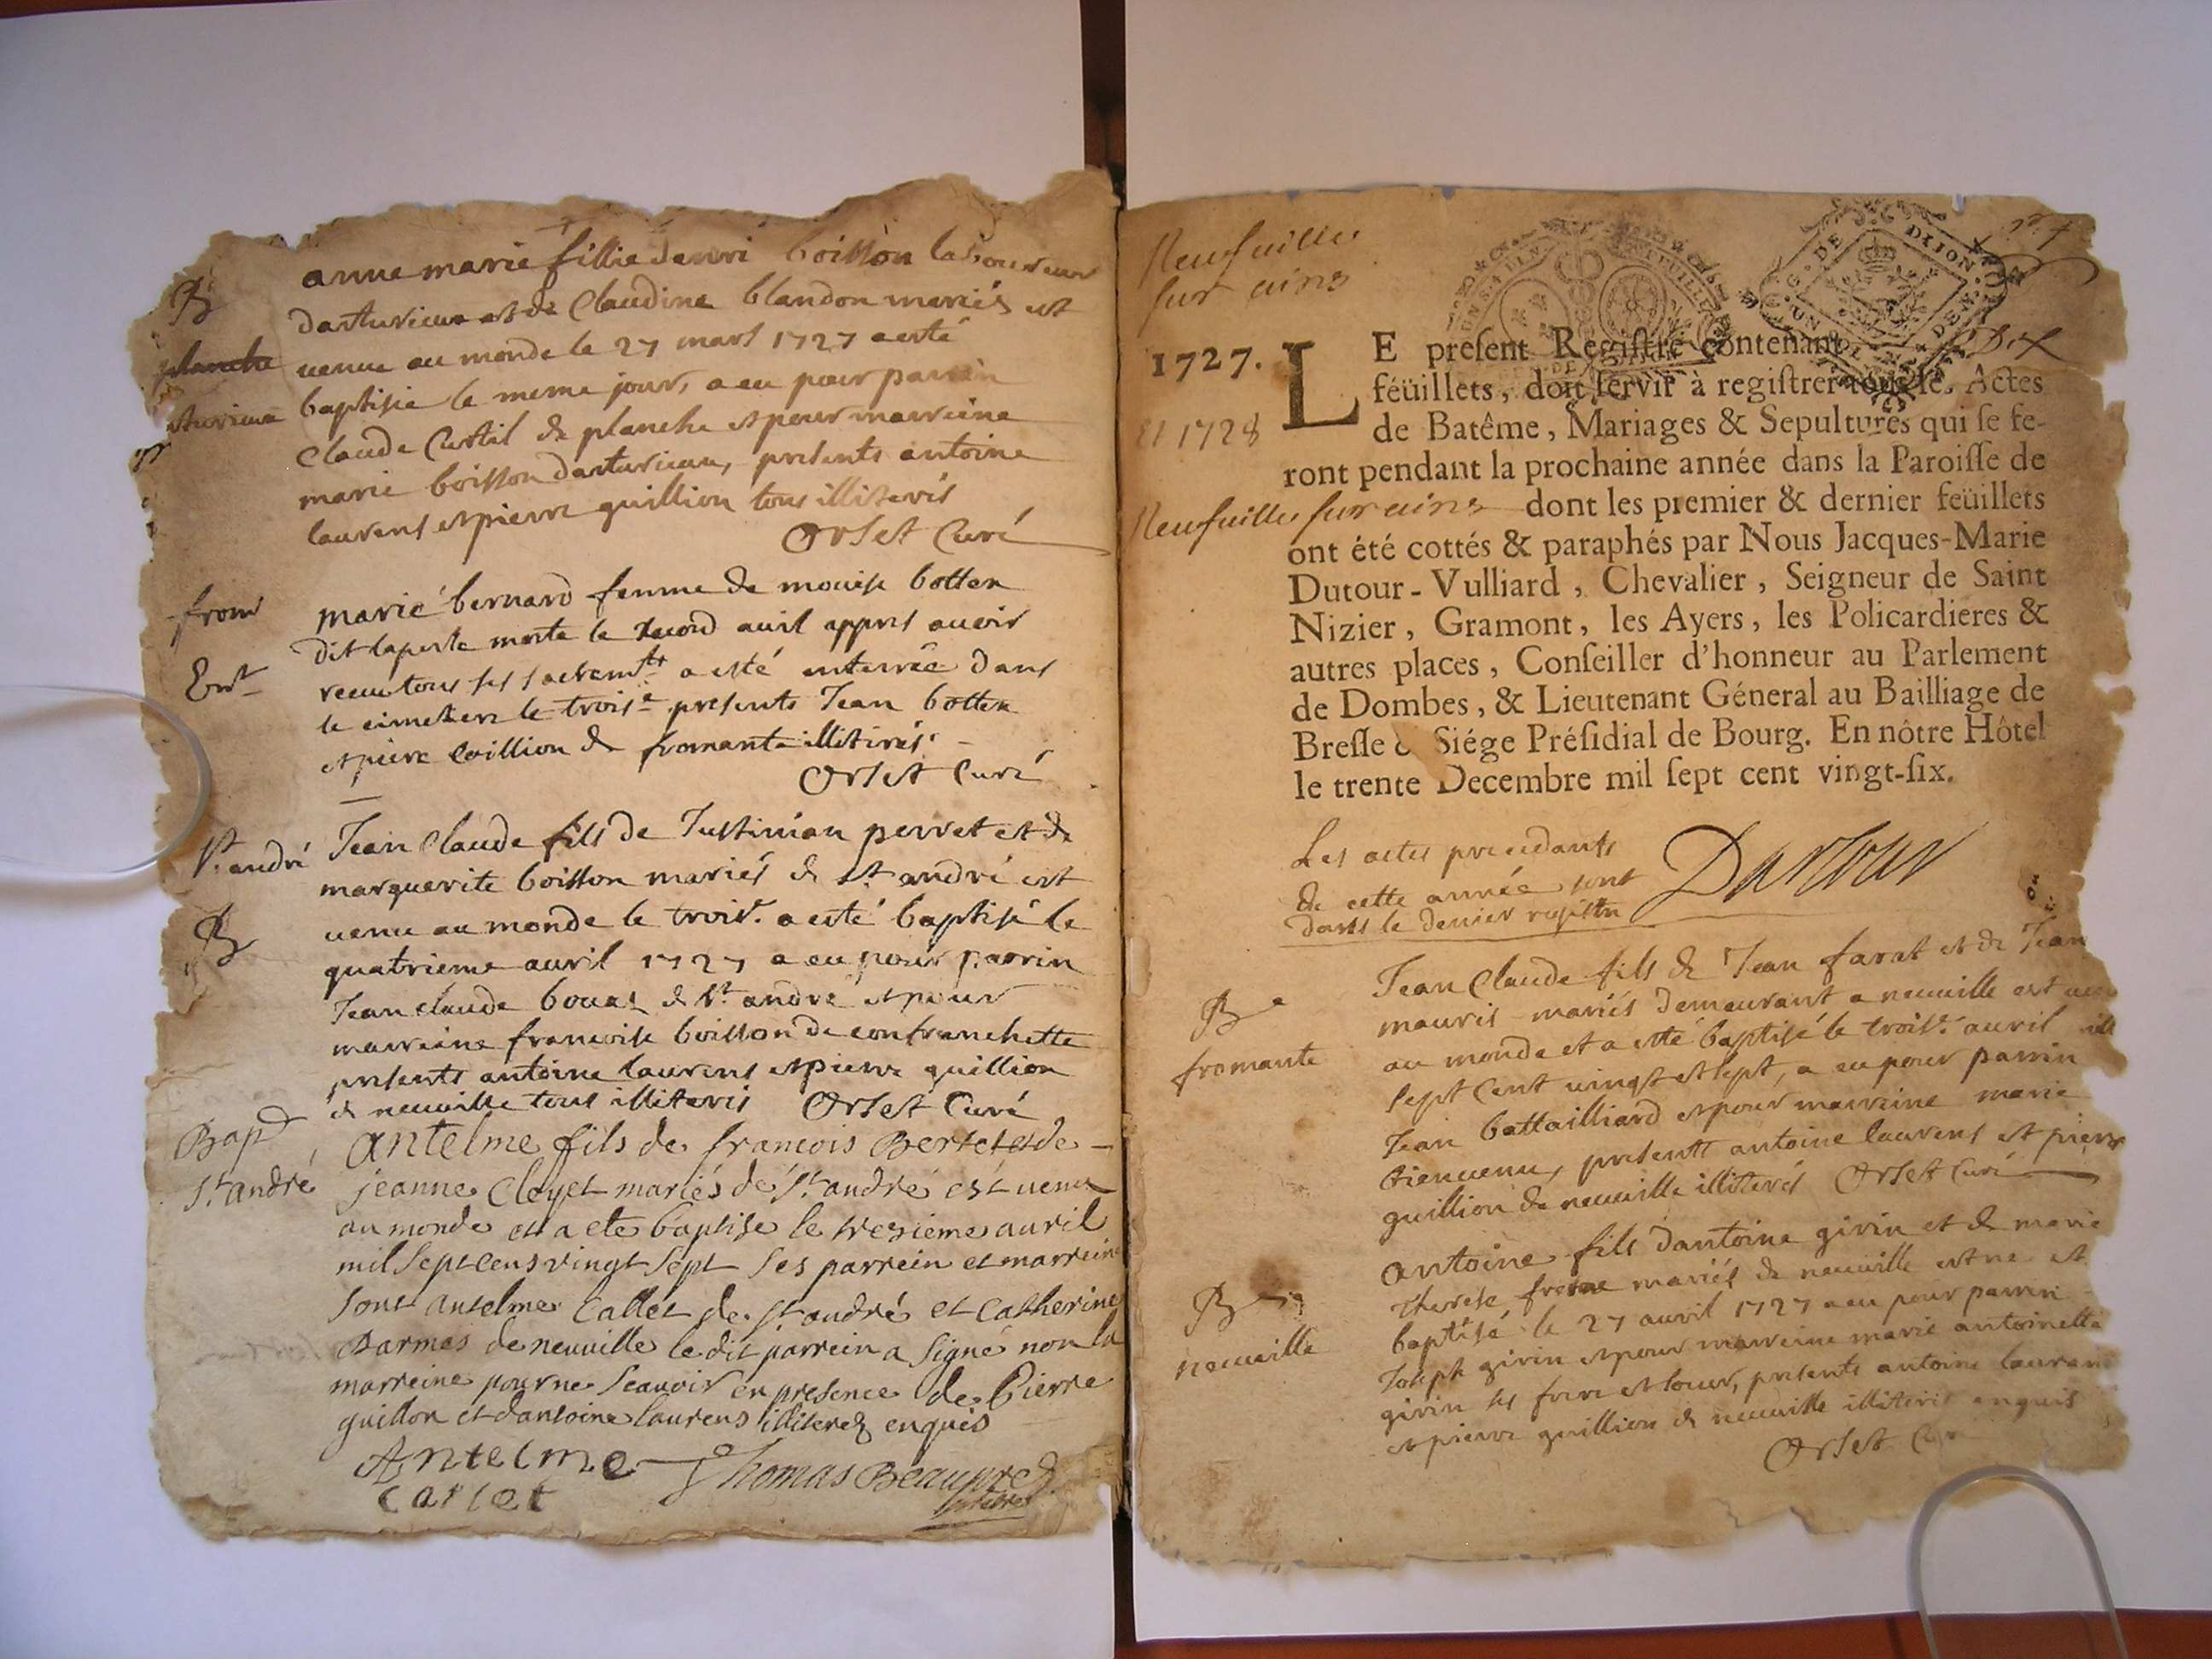 B
planche
anne marie fillie denri boisson laboureur
darturieux et de Claudine blandon mariés est
venue au monde le 27 mars 1727 a esté
baptisée le meme jour, a eu pour parrin
Claude Curtil de planche et pour marreine
marie boisson darturieux, presents antoine
laurens et pierre guillion tous illiterés
Orset Curé
from
Entt
marie bernard femme de moise botter
dit laperle morte le second avril appres avoir
receu tous ses sacremts a esté enterrée dans
le cimetiere le trois.e presents Jean botter
et pierre coillion de fromante illiterés
Orset Curé
St. andré
B
Jean Claude fils de Justinian perret et de
marguerite boisson mariés de St. andré est
venu au monde le trois.e a esté baptisé le
quatrieme avril 1727 a eu pour parrin
Jean claude bouat de St. andré et pour
marreine francoise boisson de confranchette
presents antoine laurens et pierre guillion
de neuville tous illiterés Orset Curé
Bap
St. andré
antelme fils de francois Bertet et de
jeanne Cleyet mariés de St. andré est venu
au monde et a ete baptisé le tresieme avril
mil sept cens vingt sept ses parrein et marreine
sont antelme Callet de St. andré et Catherine
Darmes de neuville le dit parrein a signé non la
marreine pour ne scavoir en presence de Pierre
guillon et dantoine laurens illiterez enquis
Antelme Thomas Beaupred
carlet
Neufuille
sur ains
G. DE DIJON
UN DEN
1727.
et 1728
LE present Registre contenant Dix
féüillets, doit servir à registrer tous les Actes
de Batême, Mariages & Sepultures qui se fe-
ront pendant la prochaine année dans la Paroisse de
Neufuille sur ains dont les premier & dernier feüillets
ont été cottés & paraphés par Nous Jacques-Marie
Dutour-Vulliard, Chevalier, Seigneur de Saint
Nizier, Gramont, les Ayers, les Policardieres &
autres places, Conseiller d'honneur au Parlement
de Dombes, & Lieutenant Géneral au Bailliage de
Bresse & Siége Présidial de Bourg. En nôtre Hôtel
le trente Decembre mil sept cent vingt-six.
Les actes precedants
de cette année sont
dans le denier registre
Dutour
B
fromante
Jean Claude fils de Jean farat et de Jean
mauris mariés demeurant a neuville est
au monde et a esté baptisé le trois.e avril
sept Cent vingt et sept, a eu pour parrin
Jean battailliard et pour marreine marie
bienvenu, presents antoine laurens et pierre
guillion de neuville illiterés Orset Curé
B
neuuille
antoine fils dantoine givin et de marie
therese mariés de neuville est ne et
baptisé le 27 avril 1727 a eu pour parrin
Joseph givin et pour marreine marie antoinette
givin ses frere et soeur, presents antoine laurens
et pierre guillion de neuville illiterés enquis
Orset